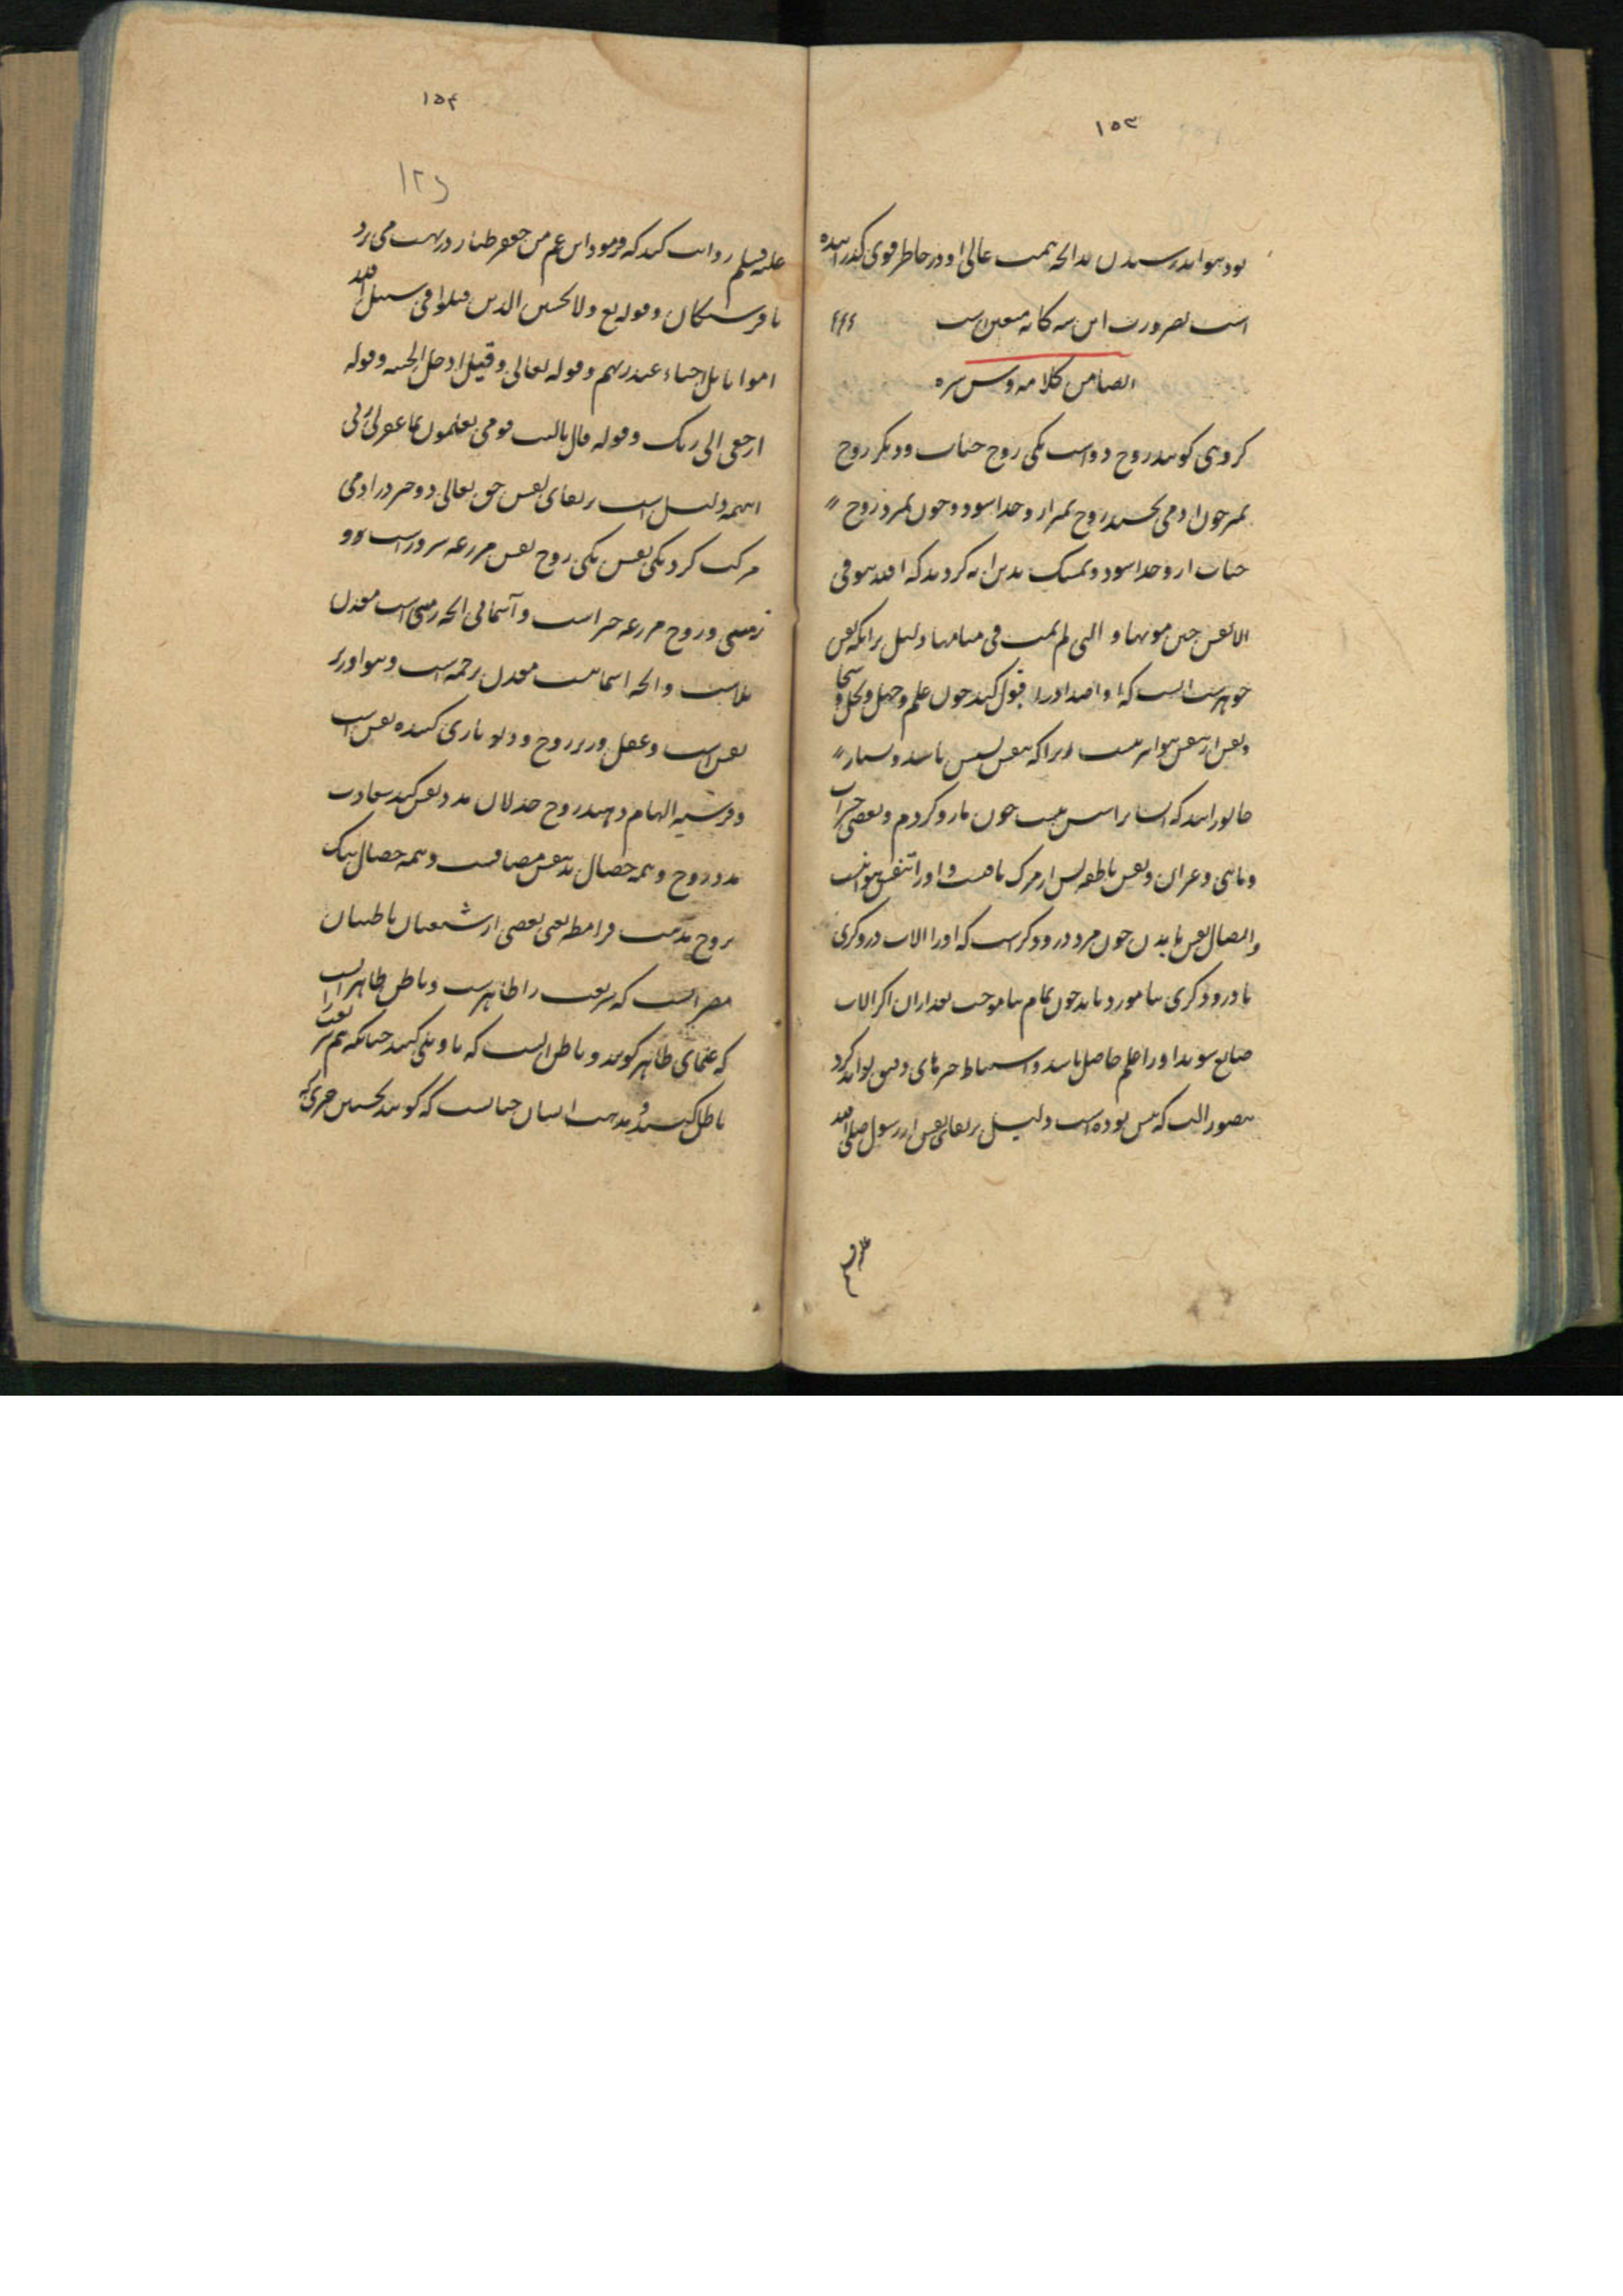 ۱۵۳
بود بتواند رسیدن بدانچه همت عالی او در خاطر قوی گذرانیده
است بضرورت این سه کانه معین است
ایضا من کلامه قدس سره
کروهی کویند روح دو است یکی روح حیات و دیکر روح
تمیز چون آدمی بخسبد روح تمیز از و جدا شود و چون بمیرد روح
حیات از و جدا شود و تمسک بدین ایه کردند که الله یتوفی
الانفس حین موتها و التی لم تمت فی منامها دلیل برانکه نفس
جوهریست آنست که او اضداد را قبول کند چون علم و جهل و بخل و سخا
و نفس از تنفس هوا نیست زیرا که تنفس نفس باشد و بسیار
جانورانند که ایشانرا نفس نیست چون مار و کردم و بعضی حشرات
و ماهی و غیر آن و نفس ناطقه پس از مرک باقیست و او را تنفس هوا نیست
و اتصال نفس با بدن چون مرد درودکرست که او را آلات درودکری
تا درودکری بیاموزد باید چون تمام بیاموخت بعد از آن اکر آلات
ضایع شوند او را علم حاصل باشد و استنباط حرفهای دقیق تواند کرد
متصور آنست که پس بوده است دلیل بر بقای نفس از رسول صلی الله
۱۵۴
علیه و سلم روایت کنند که فرمود ابن عم من جعفر طیار در بهشت می پرد
با فرشتکان و قوله تع و لا تحسبن الذین قتلوا فی سبیل الله
امواتا بل احیاء عند ربهم و قوله تعالی و قیل ادخل الجنه و قوله
ارجعی الی ربک و قوله قال یالیت قومی یعلمون بما غفر لی ربی
اینهمه دلیل است بر بقای نفس حق تعالی دو چیز در آدمی
مرکب کرد یکی نفس یکی روح نفس مزرعه شرور است و او
زمینی و روح مزرعه خیر است و آسمانی آنچه زمینی است معدن
بلاست و آنچه آسمانیست معدن رحمه است و هوا وزیر
نفس است و عقل وزیر روح و دیو یاری کننده نفس است
و فرشته الهام دهنده روح خذلان مدد نفس کند سعادت
مدد روح و همه خصال بد بنفس مضافست و همه خصال نیک
بروح مذهب قرامطه یعنی بعضی از شیعیان باطنیان
مصر آنست که شریعت را ظاهریست و باطن ظاهر آنست
که علمای ظاهر کویند و باطن آنست که تاویلی کنند چنانکه هم شریعت را
باطل کنند و مذهب ایشان چنانست که کویند نخستین چیزی که